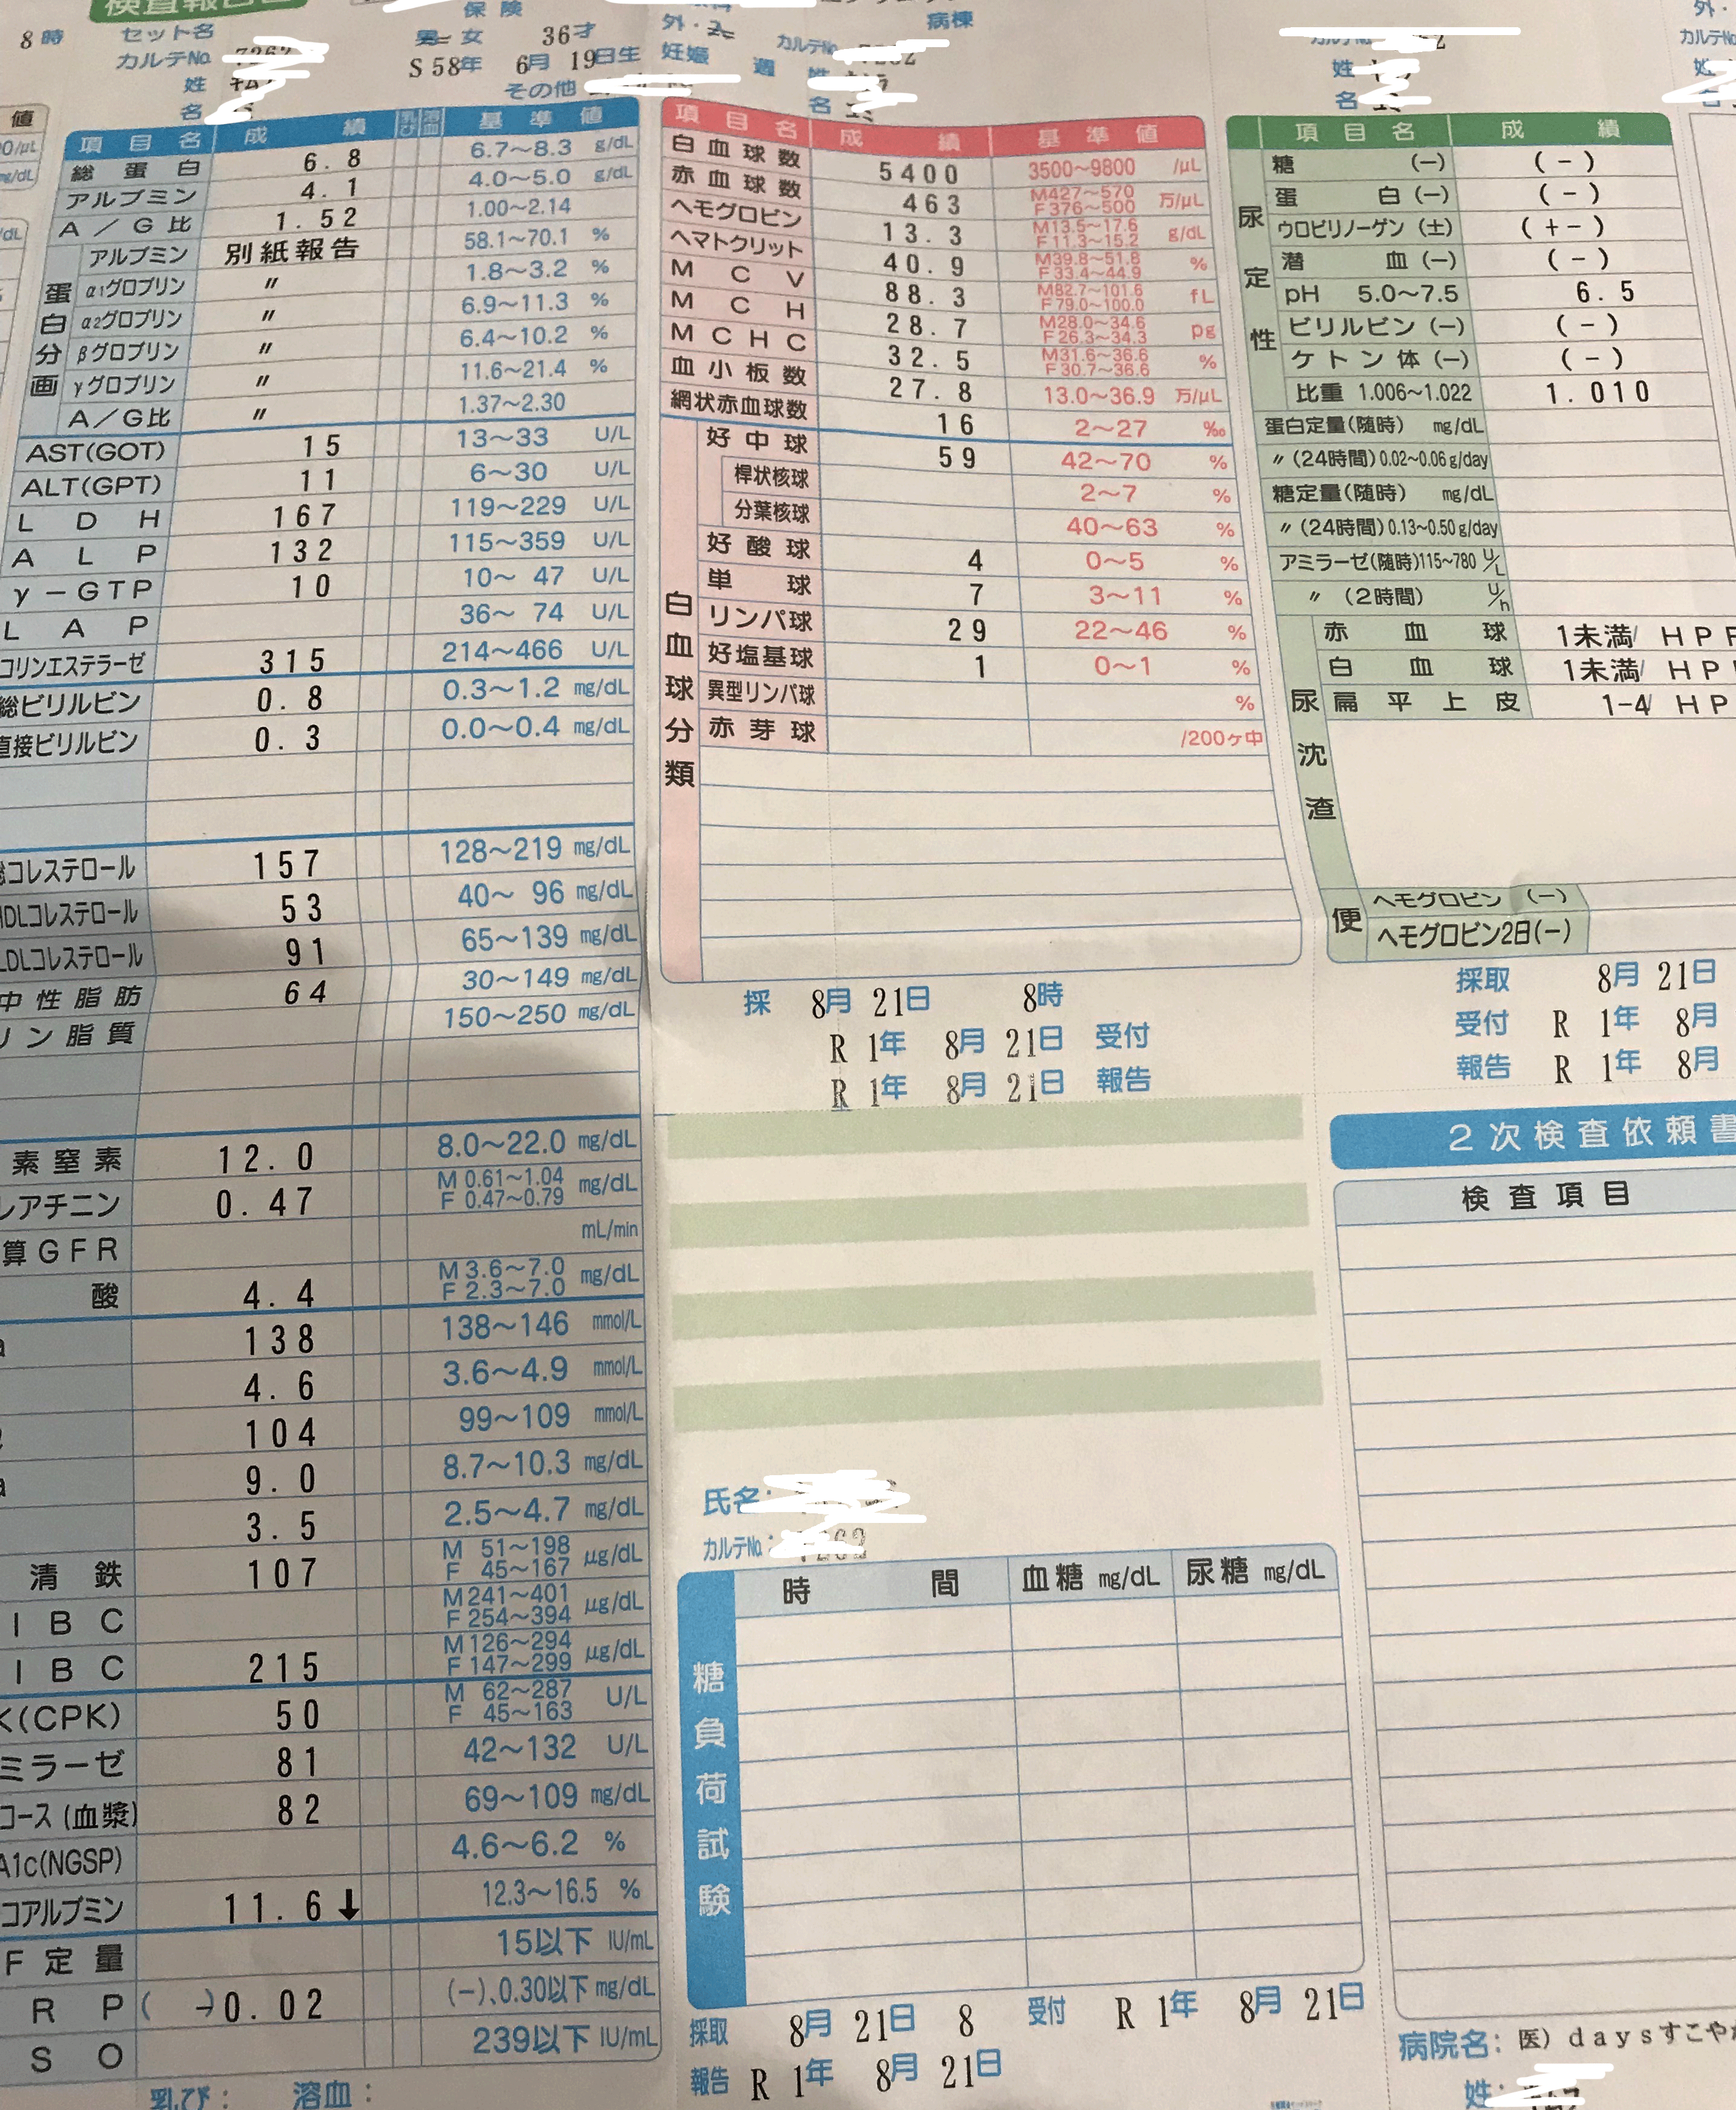 検査報告書
8時
セット名
カルテNo.
姓
名
保険
男 女 36才
S58年 6月 19日生
その他
外・
妊娠 週
病棟
カルテNo.
姓
名
姓
名
外・
カルテNo.
値
項目名 成績 乳び 溶血 基準値
総蛋白 6.8 6.7～8.3 g/dL
アルブミン 4.1 4.0～5.0 g/dL
A/G比 1.52 1.00～2.14
蛋白分画
アルブミン 別紙報告 58.1～70.1 %
α1グロブリン 〃 1.8～3.2 %
α2グロブリン 〃 6.9～11.3 %
βグロブリン 〃 6.4～10.2 %
γグロブリン 〃 11.6～21.4 %
A/G比 〃 1.37～2.30
AST(GOT) 15 13～33 U/L
ALT(GPT) 11 6～30 U/L
LDH 167 119～229 U/L
ALP 132 115～359 U/L
γ-GTP 10 10～47 U/L
LAP 36～74 U/L
コリンエステラーゼ 315 214～466 U/L
総ビリルビン 0.8 0.3～1.2 mg/dL
直接ビリルビン 0.3 0.0～0.4 mg/dL
総コレステロール 157 128～219 mg/dL
HDLコレステロール 53 40～96 mg/dL
LDLコレステロール 91 65～139 mg/dL
中性脂肪 64 30～149 mg/dL
リン脂質 150～250 mg/dL
素窒素 12.0 8.0～22.0 mg/dL
レアチニン 0.47 M 0.61～1.04 F 0.47～0.79 mg/dL
算GFR mL/min
酸 4.4 M 3.6～7.0 F 2.3～7.0 mg/dL
a 138 138～146 mmol/L
4.6 3.6～4.9 mmol/L
104 99～109 mmol/L
a 9.0 8.7～10.3 mg/dL
3.5 2.5～4.7 mg/dL
清鉄 107 M 51～198 F 45～167 μg/dL
IBC M 241～401 F 254～394 μg/dL
IBC 215 M 126～294 F 147～299 μg/dL
K(CPK) 50 M 62～287 F 45～163 U/L
ミラーゼ 81 42～132 U/L
コース(血漿) 82 69～109 mg/dL
A1c(NGSP) 4.6～6.2 %
コアルブミン 11.6↓ 12.3～16.5 %
F定量 15以下 IU/mL
RP (-)0.02 (-)、0.30以下 mg/dL
SO 239以下 IU/mL
乳び: 溶血:
項目名 成績 基準値
白血球数 5400 3500～9800 /μL
赤血球数 463 M427～570 F376～500 万/μL
ヘモグロビン 13.3 M13.5～17.6 F11.3～15.2 g/dL
ヘマトクリット 40.9 M39.8～51.8 F33.4～44.9 %
MCV 88.3 M82.7～101.6 F79.0～100.0 fL
MCH 28.7 M28.0～34.6 F26.3～34.3 pg
MCHC 32.5 M31.6～36.6 F30.7～36.6 %
血小板数 27.8 13.0～36.9 万/μL
網状赤血球数 16 2～27 ‰
白血球分類
好中球 59 42～70 %
桿状核球 2～7 %
分葉核球 40～63 %
好酸球 4 0～5 %
単球 7 3～11 %
リンパ球 29 22～46 %
好塩基球 1 0～1 %
異型リンパ球 %
赤芽球 /200ヶ中
採 8月 21日 8時
R 1年 8月 21日 受付
R 1年 8月 21日 報告
氏名:
カルテNo.:
糖負荷試験
時間 血糖 mg/dL 尿糖 mg/dL
採取 8月 21日 8 受付 R 1年 8月 21日
報告 R 1年 8月 21日
項目名 成績
尿定性
糖 (-) (-)
蛋白 (-) (-)
ウロビリノーゲン (±) (+-)
潜血 (-) (-)
pH 5.0～7.5 6.5
ビリルビン (-) (-)
ケトン体 (-) (-)
比重 1.006～1.022 1.010
蛋白定量(随時) mg/dL
〃 (24時間) 0.02～0.06 g/day
糖定量(随時) mg/dL
〃 (24時間) 0.13～0.50 g/day
アミラーゼ(随時) 115～780 U/L
〃 (2時間) U/h
尿沈渣
赤血球 1未満/ HPF
白血球 1未満/ HP
扁平上皮 1-4/ HP
便
ヘモグロビン (-)
ヘモグロビン2日(-)
採取 8月 21日
受付 R 1年 8月
報告 R 1年 8月
2次検査依頼書
検査項目
病院名: 医) daysすこやか
姓: